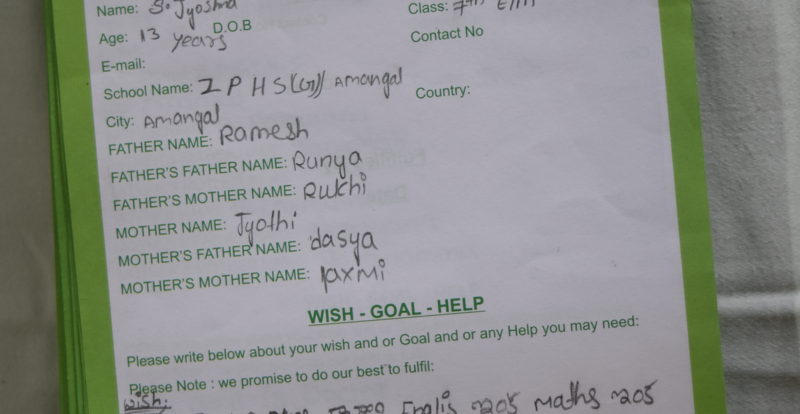 Name: S. Jyoshna Class: 7th E/M
Age: 13 years D.O.B Contact No
E-mail:
School Name: Z P H S (G) Amangal Country:
City: Amangal
FATHER NAME: Ramesh
FATHER'S FATHER NAME: Runya
FATHER'S MOTHER NAME: Rukhi
MOTHER NAME: Jyothi
MOTHER'S FATHER NAME: dasya
MOTHER'S MOTHER NAME: laxmi
WISH - GOAL - HELP
Please write below about your wish and or Goal and or any Help you may need:
Please Note : we promise to do our best to fulfil:
Wish:
Inglis 205 Maths 205